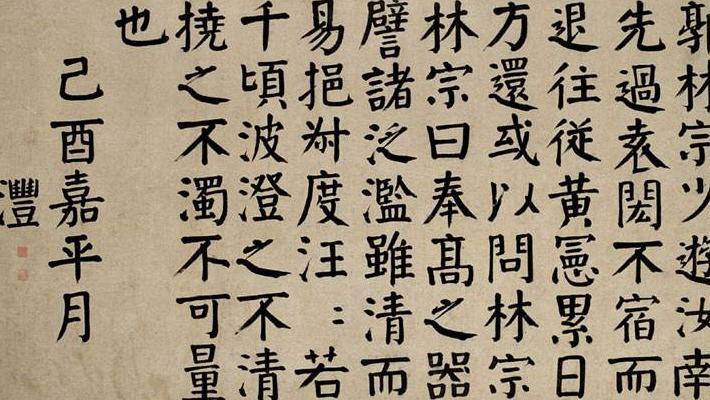 郭林宗少遊汝南
先過袁閎不宿而
退往從黃憲累日
方還或以問林宗
林宗曰奉高之器
譬諸泛濫雖清而
易挹叔度汪〻若
千頃波澄之不清
撓之不濁不可量
也
己酉嘉平月
灃